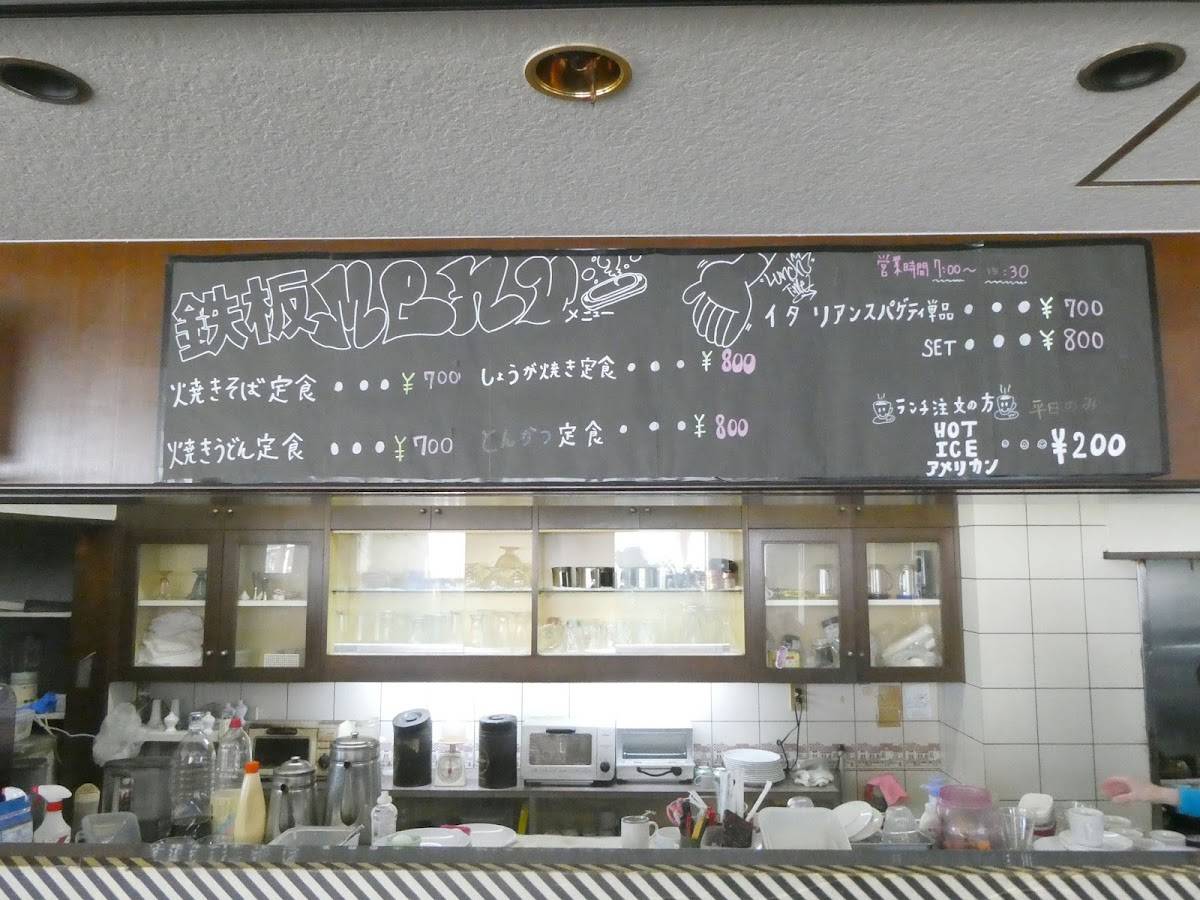 鉄板menu
メニュー
焼きそば定食 ・・・¥700
焼きうどん定食 ・・・¥700
しょうが焼き定食・・・¥800
とんかつ定食・・・¥800
LUNCH
TIME
営業時間 7:00〜 15:30
イタリアンスパゲティ単品・・・¥700
SET・・・¥800
ランチ注文の方 平日のみ
HOT
ICE ・・・¥200
アメリカン